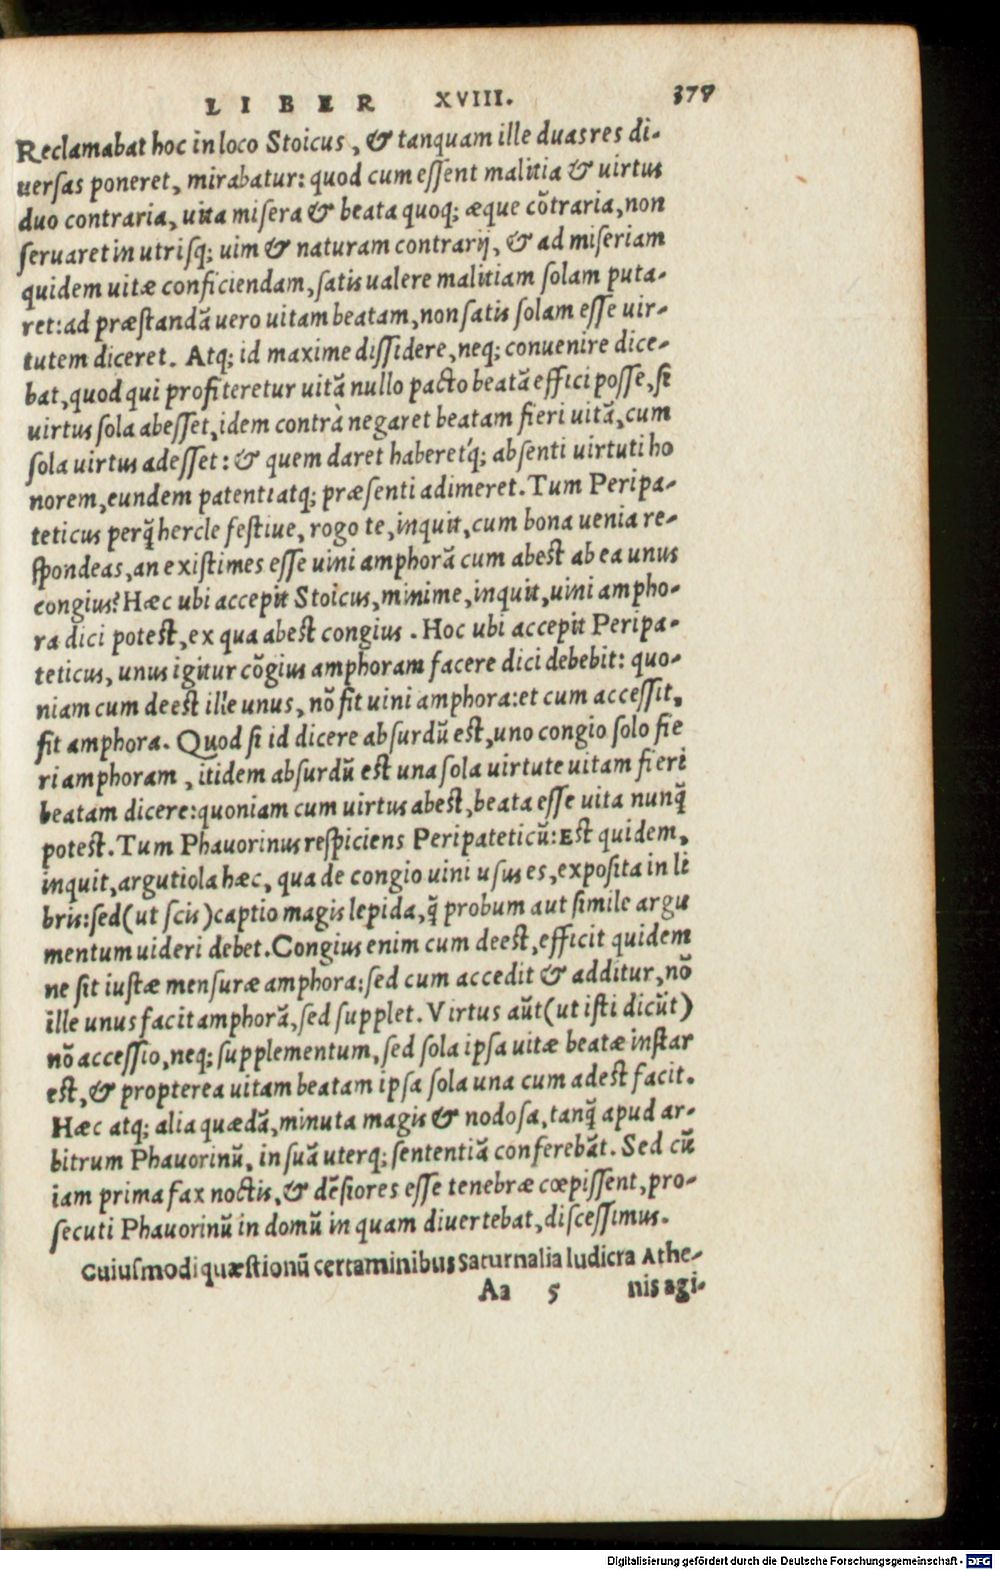 LIBER XVIII. 377
Reclamabat hoc in loco Stoicus, & tanquam ille duas res di-
uersas poneret, mirabatur: quod cum essent malitia & uirtus
duo contraria, uita misera & beata quoq; æque cõtraria, non
seruaret in utrisq; uim & naturam contrarij, & ad miseriam
quidem uitæ conficiendam, satis ualere malitiam solam puta-
ret: ad præstandã uero uitam beatam, non satis solam esse uir-
tutem diceret. Atq; id maxime dissidere, neq; conuenire dice-
bat, quod qui profiteretur uitã nullo pacto beatã effici posse, si
uirtus sola abesset, idem contrà negaret beatam fieri uitã, cum
sola uirtus adesset: & quem daret haberet'q; absenti uirtuti ho
norem, eundem patenti atq; præsenti adimeret. Tum Peripa-
teticus perq̃ hercle festiue, rogo te, inquit, cum bona uenia re-
spondeas, an existimes esse uini amphorã cum abest ab ea unus
congius? Hæc ubi accepit Stoicus, minime, inquit, uini ampho-
ra dici potest, ex qua abest congius. Hoc ubi accepit Peripa-
teticus, unus igitur cõgius amphoram facere dici debebit: quo-
niam cum deest ille unus, nõ fit uini amphora: et cum accessit,
fit amphora. Quod si id dicere absurdũ est, uno congio solo fie
ri amphoram, itidem absurdũ est una sola uirtute uitam fieri
beatam dicere: quoniam cum uirtus abest, beata esse uita nunq̃
potest. Tum Phauorinus respiciens Peripateticũ: Est quidem,
inquit, argutiola hæc, qua de congio uini usus es, exposita in li
bris: sed (ut scis) captio magis lepida, q̃ probum aut simile argu
mentum uideri debet. Congius enim cum deest, efficit quidem
ne sit iustæ mensuræ amphora: sed cum accedit & additur, nõ
ille unus facit amphorã, sed supplet. Virtus aũt (ut isti dicũt)
nõ accessio, neq; supplementum, sed sola ipsa uitæ beatæ instar
est, & propterea uitam beatam ipsa sola una cum adest facit.
Hæc atq; alia quædã, minuta magis & nodosa, tanq̃ apud ar-
bitrum Phauorinũ, in suã uterq; sententiã conferebãt. Sed cũ
iam prima fax noctis, & dẽsiores esse tenebræ cœpissent, pro-
secuti Phauorinũ in domũ in quam diuertebat, discessimus.
Cuiusmodi quæstionũ certaminibus Saturnalia ludicra Athe-
Aa 5 nis agi-
Digitalisierung gefördert durch die Deutsche Forschungsgemeinschaft - DFG